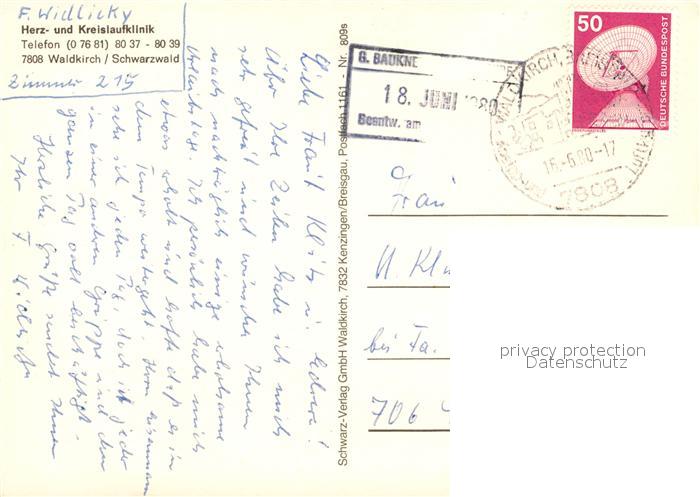 F. Widlicky
Herz- und Kreislaufklinik
Telefon (0 76 81) 80 37 - 80 39
7808 Waldkirch / Schwarzwald
Zimmer 215
Liebe Frau
Über Ihre Zeilen habe ich mich
sehr gefreut und wünsche Ihnen
noch nachträglich einige erholsame
Urlaubstage. Ich persönlich habe mich
etwas erholt und hoffe daß es in
dem Tempo weitergeht. Herrn
sehe ich jeden Tag, doch ist jeder
in einer anderen Gruppe und den
ganzen Tag voll beschäftigt.
Herzliche Grüße sendet Ihnen
Ihr F. Widlicky
Schwarz-Verlag GmbH Waldkirch, 7832 Kenzingen/Breisgau, Postfach 1161 - Nr. 809s
G. BAUKNE
18. JUNI 1980
Beantw. am
50
DEUTSCHE BUNDESPOST
16.-6.80-17
7808
Frau
bei Fa.
706
privacy protection
Datenschutz